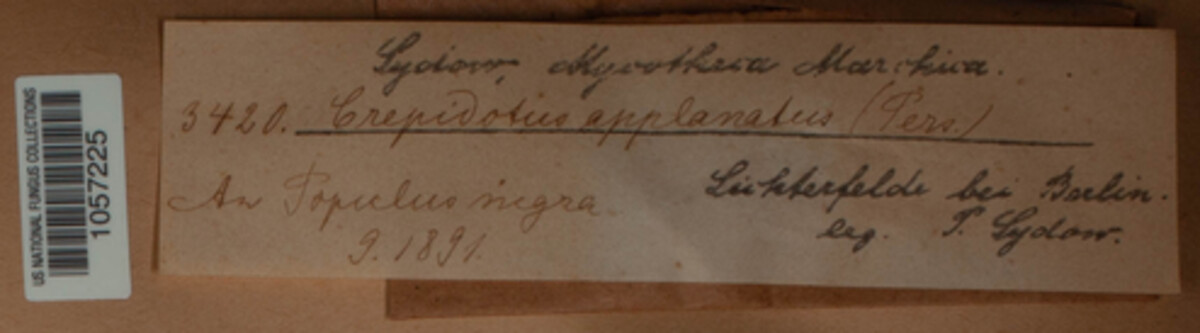 US NATIONAL FUNGUS COLLECTIONS
1057225
Sydow, Mycotheca Marchica.
3420. Crepidotus applanatus (Pers.)
An Populus nigra
9. 1891.
Lichterfelde bei Berlin.
leg. P. Sydow.